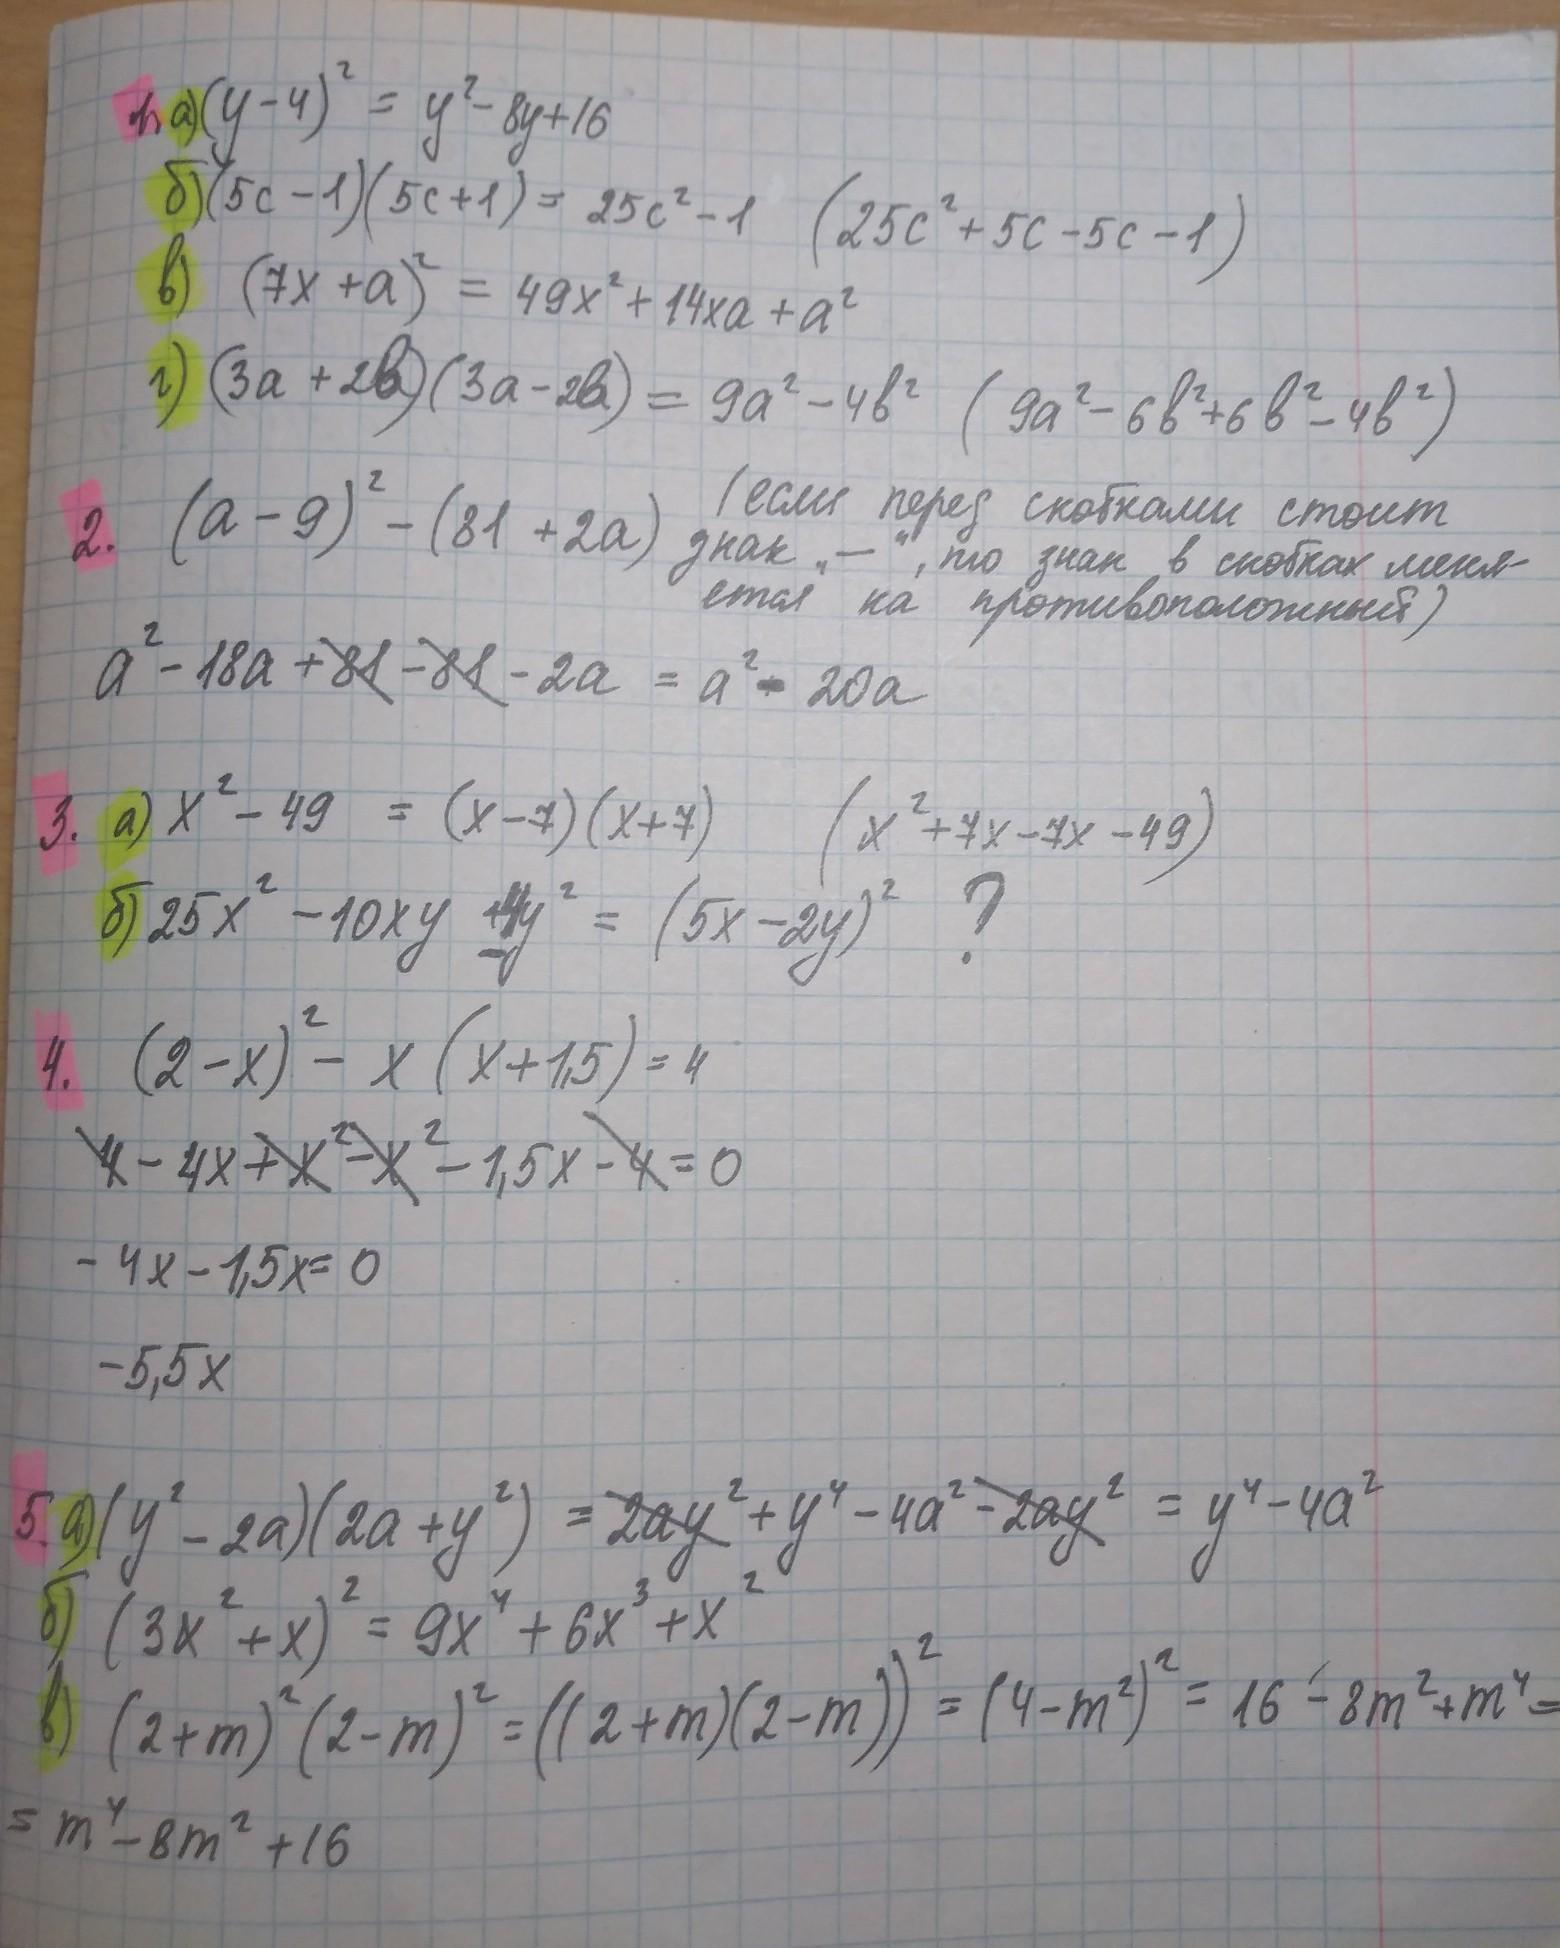 1. а) (y-4)² = y² - 8y + 16
б) (5c-1)(5c+1) = 25c² - 1 (25c² + 5c - 5c - 1)
в) (7x + a)² = 49x² + 14xa + a²
г) (3a + 2b)(3a - 2b) = 9a² - 4b² (9a² - 6b² + 6b² - 4b²)
2. (a - 9)² - (81 + 2a) (если перед скобками стоит
знак „—“, то знак в скобках меня-
ется на противоположный)
a² - 18a + 81 - 81 - 2a = a² - 20a
3. а) x² - 49 = (x-7)(x+7) (x² + 7x - 7x - 49)
б) 25x² - 10xy + 4y² = (5x - 2y)² ?
4. (2-x)² - x (x + 1,5) = 4
4 - 4x + x² - x² - 1,5x - 4 = 0
- 4x - 1,5x = 0
-5,5x
5. а) (y² - 2a)(2a + y²) = 2ay² + y⁴ - 4a² - 2ay² = y⁴ - 4a²
б) (3x² + x)² = 9x⁴ + 6x³ + x²
в) (2+m)² (2-m)² = ((2+m)(2-m))² = (4-m²)² = 16 - 8m² + m⁴ =
= m⁴ - 8m² + 16